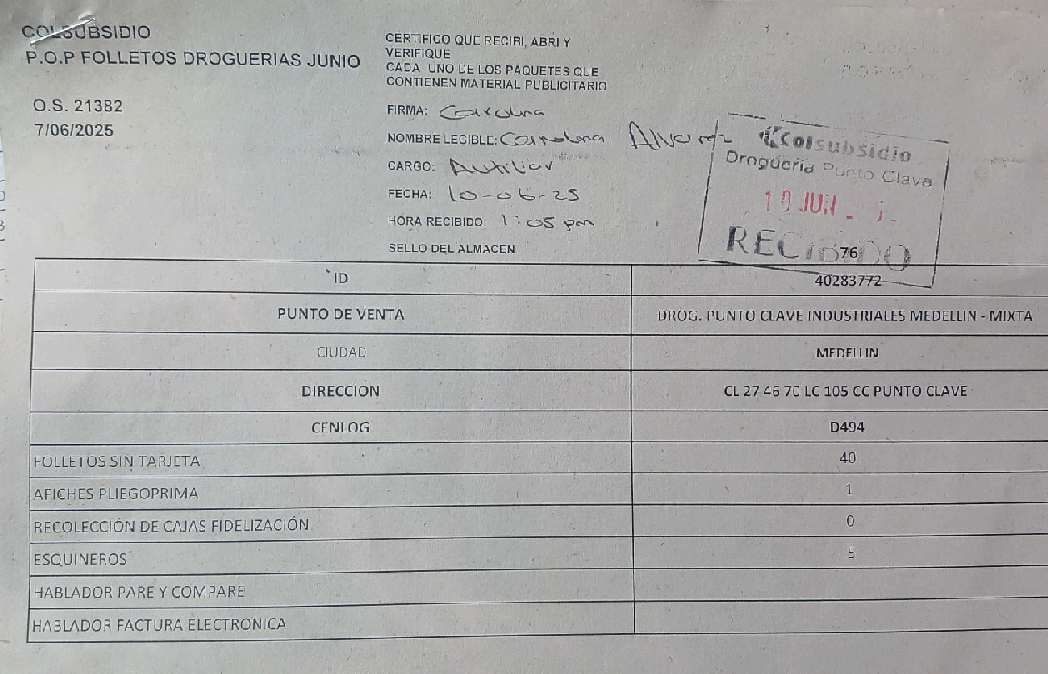 COLSUBSIDIO
P.O.P FOLLETOS DROGUERIAS JUNIO
O.S. 21382
7/06/2025
CERTIFICO QUE RECIBI, ABRI Y
VERIFIQUE
CADA UNO DE LOS PAQUETES QUE
CONTIENEN MATERIAL PUBLICITARIO
FIRMA: Carolina
NOMBRE LEGIBLE: Carolina
CARGO: Auxiliar
FECHA: 10-06-25
HORA RECIBIDO 1:05 pm
SELLO DEL ALMACEN
Colsubsidio
Droguería Punto Clave
10 JUN
RECIBIDO
76
ID 40283772
PUNTO DE VENTA DROG. PUNTO CLAVE INDUSTRIALES MEDELLIN - MIXTA
CIUDAD MEDELLIN
DIRECCION CL 27 46 70 LC 105 CC PUNTO CLAVE
CENLOG D494
FOLLETOS SIN TARJETA 40
AFICHES PLIEGOPRIMA 1
RECOLECCIÓN DE CAJAS FIDELIZACIÓN 0
ESQUINEROS 5
HABLADOR PARE Y COMPARE
HABLADOR FACTURA ELECTRONICA